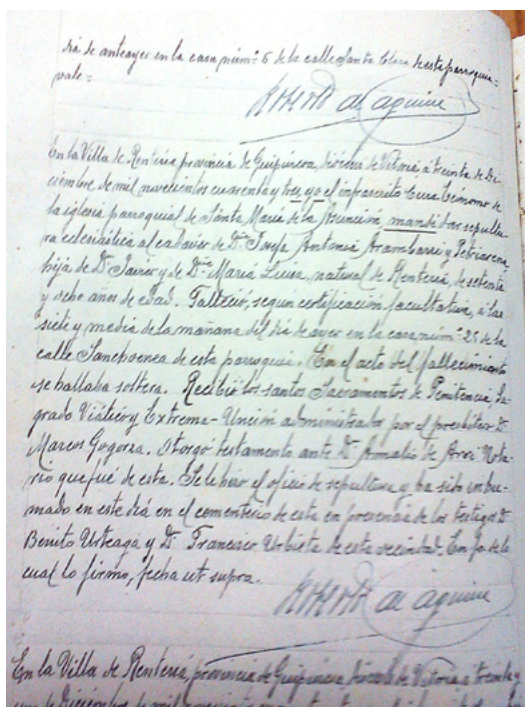 día de anteayer en la casa núm.º 5 de la calle Santa Clara de esta parroquia=
vale=
Roberto de Aguirre
En la Villa de Rentería provincia de Guipúzcoa, diócesis de Vitoria, a treinta de Di-
ciembre de mil novecientos cuarenta y tres, yo el infrascrito Cura Ecónomo de
la iglesia parroquial de Santa María de la Asunción, mandé dar sepultu-
ra eclesiástica al cadáver de D.ª Josefa Antonia Arambarri y Petriarena,
hija de D. Javier y de D.ª María Luisa, natural de Rentería, de setenta
y ocho años de edad. Falleció, según certificación facultativa, a las
siete y media de la mañana del día de ayer en la casa núm.º 25 de la
calle Sanchoenea de esta parroquia. En el acto del fallecimiento
se hallaba soltera. Recibió los santos Sacramentos de Penitencia, Sa-
grado Viático y Extrema-Unción administrados por el presbítero D.
Marcos Gogorza. Otorgó testamento ante D. Amalio de Nota-
rio que fué de esta. Se celebró el oficio de sepultura y ha sido inhu-
mado en este día en el cementerio de esta en presencia de los testigos D.
Benito Urteaga y D. Francisco Urbieta de esta vecindad. En fe de lo
cual lo firmo, fecha ut supra.
Roberto de Aguirre
En la Villa de Rentería, provincia de Guipúzcoa, diócesis de Vitoria a treinta y
uno de Diciembre de mil novecientos